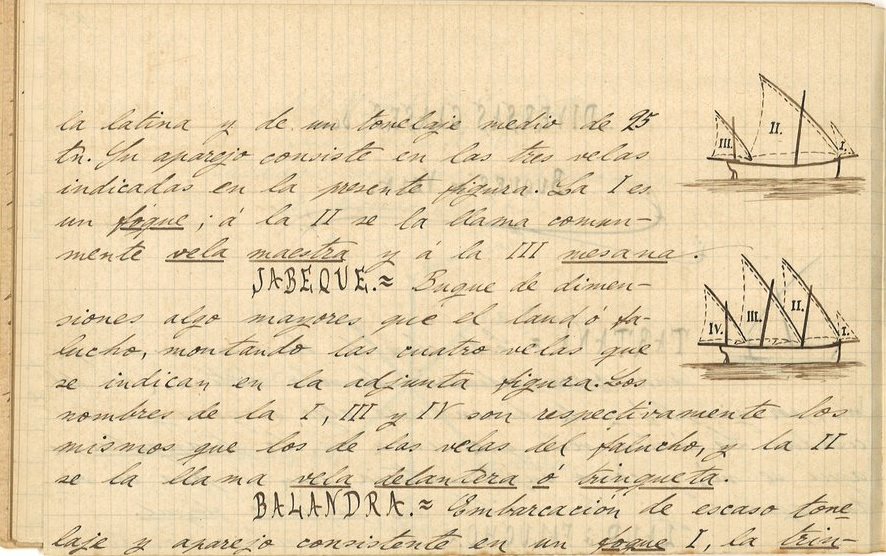 la latina y de un tonelaje medio de 25
tn. Su aparejo consiste en las tres velas
indicadas en la presente figura. La I es
un foque; á la II se la llama comun-
mente vela maestra y á la III mesana.
JABEQUE.= Buque de dimen-
siones algo mayores que el laud ó fa-
lucho, montando las cuatro velas que
se indican en la adjunta figura. Los
nombres de la I, III y IV son respectivamente los
mismos que los de las velas del falucho, y la II
se la llama vela delantera ó trinqueta.
BALANDRA.= Embarcación de escaso tone-
laje y aparejo consistente en un foque I, la trin-
III. II. I.
IV. III. II. I.